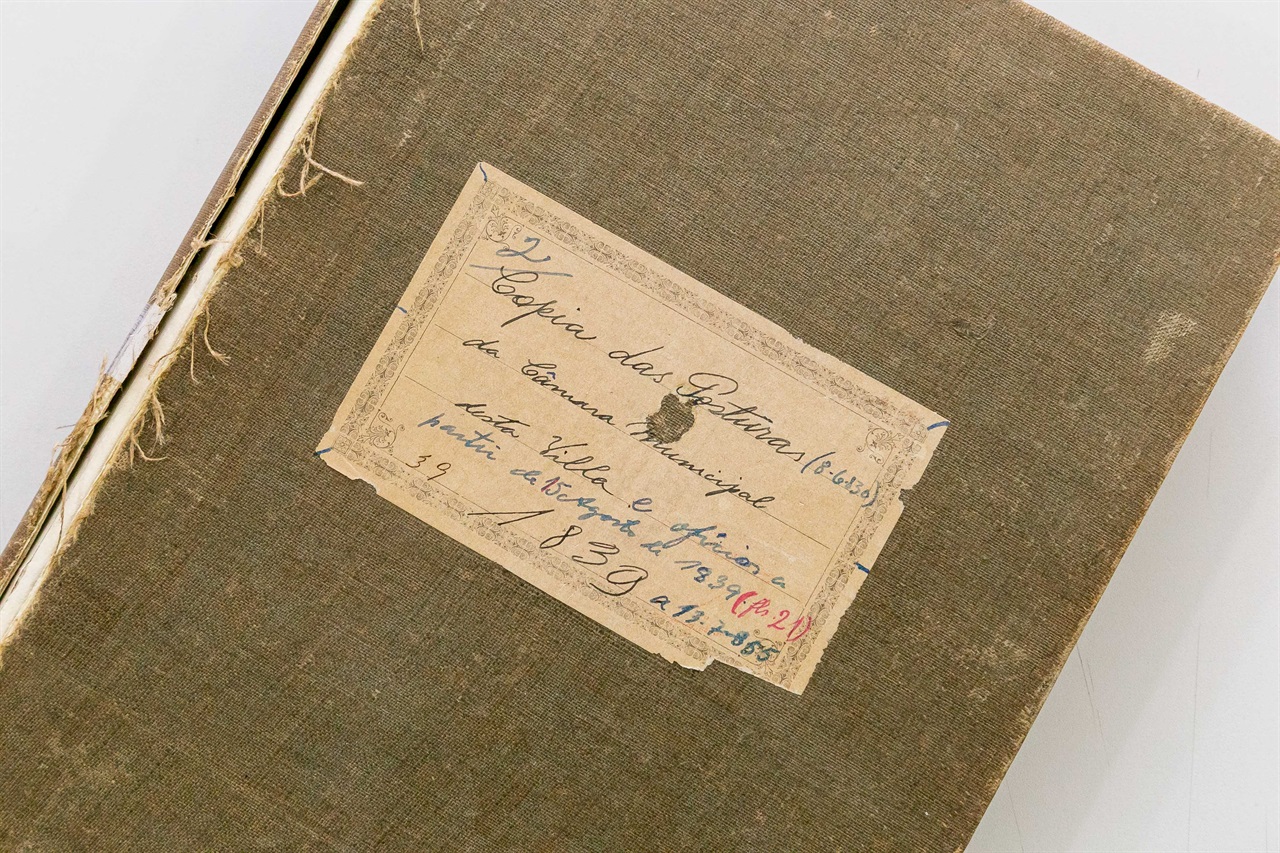 2
Copia das Posturas (8-6-830)
da Câmara Municipal
desta Villa e oficios a
partir de 15 Agosto de 1839 (fls. 21)
39
1839 a 13.7-855